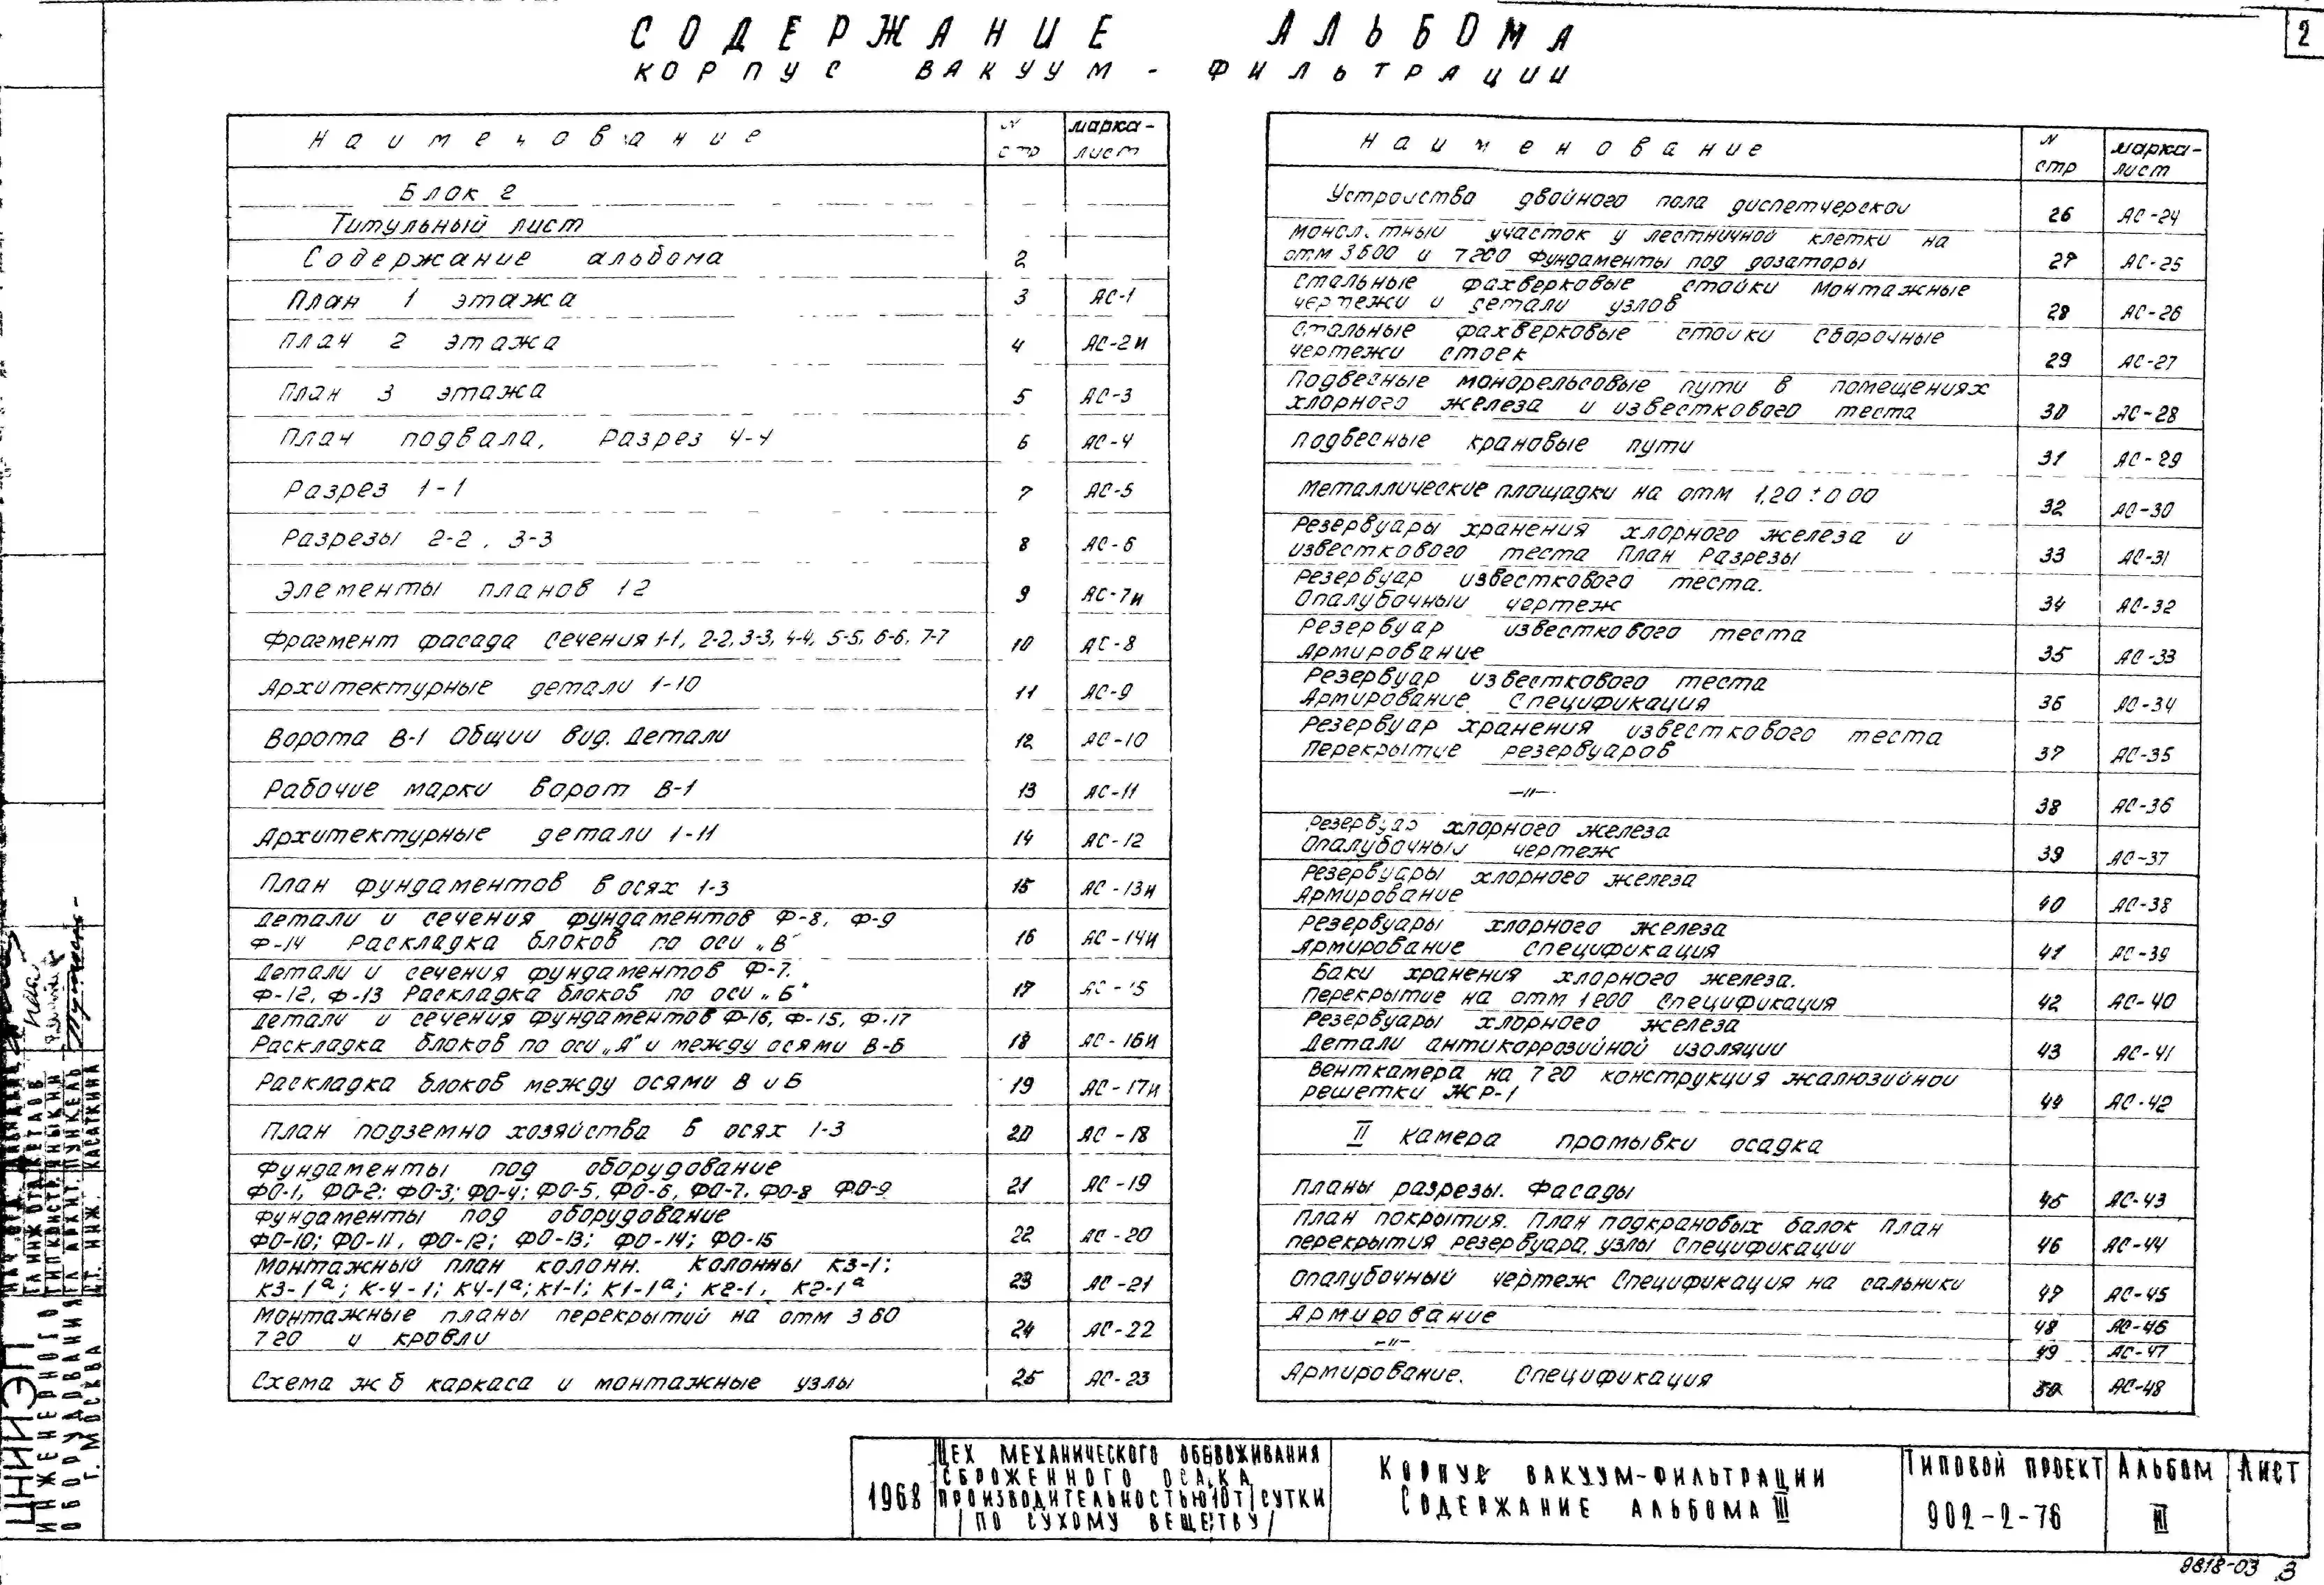 2
СОДЕРЖАНИЕ АЛЬБОМА
КОРПУС ВАКУУМ-ФИЛЬТРАЦИИ
Наименование N стр марка-лист
Блок 2
Титульный лист
Содержание альбома 2
План 1 этажа 3 АС-1
План 2 этажа 4 АС-2и
План 3 этажа 5 АС-3
План подвала, Разрез 4-4 6 АС-4
Разрез 1-1 7 АС-5
Разрезы 2-2, 3-3 8 АС-6
Элементы планов 1 2 9 АС-7и
Фрагмент фасада сечения 1-1, 2-2, 3-3, 4-4, 5-5, 6-6, 7-7 10 АС-8
Архитектурные детали 1-10 11 АС-9
Ворота В-1 Общий вид. Детали 12 АС-10
Рабочие марки ворот В-1 13 АС-11
Архитектурные детали 1-11 14 АС-12
План фундаментов в осях 1-3 15 АС-13и
Детали и сечения фундаментов Ф-8, Ф-9
Ф-14 Раскладка блоков по оси „В" 16 АС-14и
Детали и сечения фундаментов Ф-7.
Ф-12, Ф-13 Раскладка блоков по оси „Б" 17 АС-15
Детали и сечения фундаментов Ф-16, Ф-15, Ф-17
Раскладка блоков по оси „А" и между осями В-Б 18 АС-16и
Раскладка блоков между осями В и Б 19 АС-17и
План подземно хозяйства в осях 1-3 20 АС-18
Фундаменты под оборудование
ФО-1, ФО-2; ФО-3; ФО-4; ФО-5, ФО-6, ФО-7, ФО-8 ФО-9 21 АС-19
Фундаменты под оборудование
ФО-10; ФО-11, ФО-12; ФО-13; ФО-14; ФО-15 22 АС-20
Монтажный план колонн. Колонны К3-1;
К3-1а; К-4-1; К4-1а; К1-1; К1-1а; К2-1, К2-1а 23 АС-21
Монтажные планы перекрытий на отм 3 60
7 20 и кровли 24 АС-22
Схема ж б каркаса и монтажные узлы 25 АС-23
Наименование N стр марка-лист
Устройства двойного пола диспетчерской 26 АС-24
Монол.тный участок у лестничной клетки на
отм 3 600 и 7 200 Фундаменты под дозаторы 27 АС-25
Стальные фахверковые стойки Монтажные
чертежи и детали узлов 28 АС-26
Стальные фахверковые стойки Сборочные
чертежи стоек 29 АС-27
Подвесные монорельсовые пути в помещениях
хлорного железа и известкового теста 30 АС-28
Подвесные крановые пути 31 АС-29
Металлические площадки на отм 1,20 ± 0 00 32 АС-30
Резервуары хранения хлорного железа и
известкового теста План Разрезы 33 АС-31
Резервуар известкового теста.
Опалубочный чертеж 34 АС-32
Резервуар известкового теста
Армирование 35 АС-33
Резервуар известкового теста
Армирование Спецификация 36 АС-34
Резервуар хранения известкового теста
Перекрытие резервуаров 37 АС-35
—"— 38 АС-36
Резервуар хлорного железа
Опалубочный чертеж 39 АС-37
Резервуары хлорного железа
Армирование 40 АС-38
Резервуары хлорного железа
Армирование спецификация 41 АС-39
Баки хранения хлорного железа.
Перекрытие на отм 1 200 Спецификация 42 АС-40
Резервуары хлорного железа
Детали антикоррозийной изоляции 43 АС-41
Венткамера на 7 20 конструкция жалюзийной
решетки ЖР-1 44 АС-42
II камера промывки осадка
Планы разрезы. Фасады 45 АС-43
План покрытия. План подкрановых балок План
перекрытия резервуара, узлы Спецификации 46 АС-44
Опалубочный чертеж Спецификация на сальники 47 АС-45
Армирование 48 АС-46
—"— 49 АС-47
Армирование. Спецификация 50 АС-48
ЦНИИЭП
ИНЖЕНЕРНОГО
ОБОРУДОВАНИЯ
Г. МОСКВА
КАСАТКИНА
1968
ЦЕХ МЕХАНИЧЕСКОГО ОБЕЗВОЖИВАНИЯ
СБРОЖЕННОГО ОСАДКА
ПРОИЗВОДИТЕЛЬНОСТЬЮ 10 Т/СУТКИ
/ПО СУХОМУ ВЕЩЕСТВУ/
КОРПУС ВАКУУМ-ФИЛЬТРАЦИИ
СОДЕРЖАНИЕ АЛЬБОМА III
ТИПОВОЙ ПРОЕКТ
902-2-76
АЛЬБОМ
III
ЛИСТ
9818-03 3